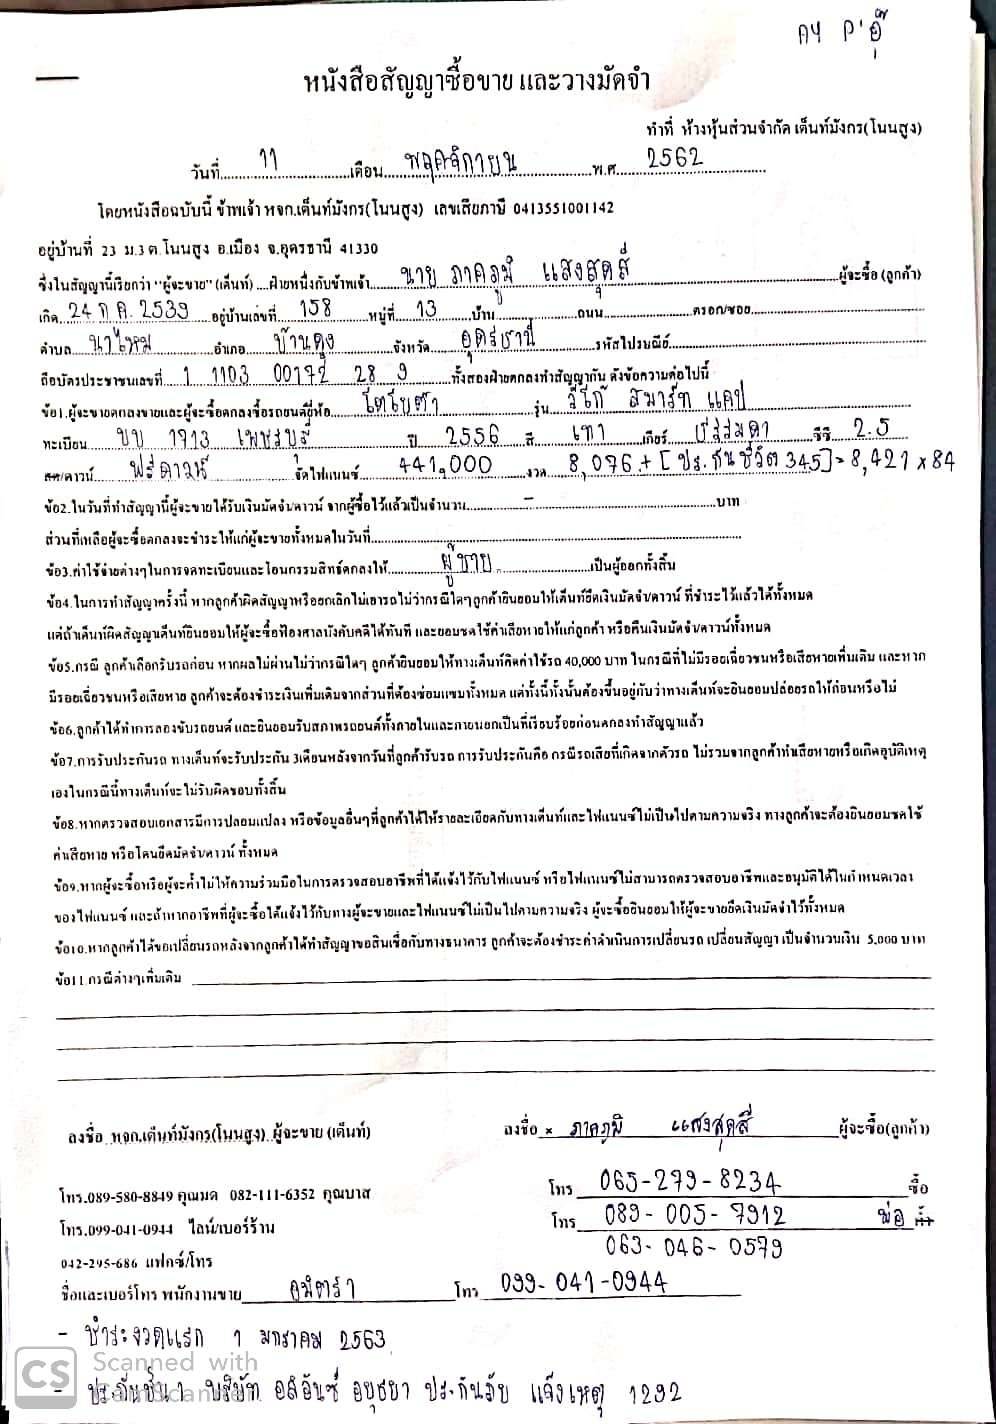 คุ P'อุ๊
หนังสือสัญญาซื้อขาย และวางมัดจำ
ทำที่ ห้างหุ้นส่วนจำกัด เต็นท์มังกร(โนนสูง)
วันที่ 11 เดือน พฤศจิกายน พ.ศ. 2562
โดยหนังสือฉบับนี้ ข้าพเจ้า หจก.เต็นท์มังกร(โนนสูง) เลขเสียภาษี 0413551001142
อยู่บ้านที่ 23 ม.3 ต.โนนสูง อ.เมือง จ.อุดรธานี 41330
ซึ่งในสัญญานี้เรียกว่า "ผู้จะขาย" (เต็นท์) ....ฝ่ายหนึ่งกับข้าพเจ้า นาย ภาคภูมิ แสงสุดสี่ ผู้จะซื้อ (ลูกค้า)
เกิด 24 ก.ค. 2539 อยู่บ้านเลขที่ 158 หมู่ที่ 13 บ้าน ถนน ตรอก/ซอย
ตำบล นาไหม อำเภอ บ้านดุง จังหวัด อุดรธานี รหัสไปรษณีย์
ถือบัตรประชาชนเลขที่ 1 1103 00172 28 9 ทั้งสองฝ่ายตกลงทำสัญญากัน ดังข้อความต่อไปนี้
ข้อ1.ผู้จะขายตกลงขายและผู้จะซื้อตกลงซื้อรถยนต์ยี่ห้อ โตโยต้า รุ่น วีโก้ สมาร์ท แคป
ทะเบียน บบ 1913 เพชรบุรี ปี 2556 สี เทา เกียร์ ธรรมดา ซีซี 2.5
สด/ดาวน์ ฟรีดาวน์ จัดไฟแนนซ์ 441,000 งวด 8,076 + [ประกันชีวิต 345] = 8,421 x 84
ข้อ2.ในวันที่ทำสัญญานี้ผู้จะขายได้รับเงินมัดจำ/ดาวน์ จากผู้ซื้อไว้แล้วเป็นจำนวน - บาท
ส่วนที่เหลือผู้จะซื้อตกลงจะชำระให้แก่ผู้จะขายทั้งหมดในวันที่
ข้อ3.ค่าใช้จ่ายต่างๆในการจดทะเบียนและโอนกรรมสิทธิ์ตกลงให้ ผู้ขาย เป็นผู้ออกทั้งสิ้น
ข้อ4.ในการทำสัญญาครั้งนี้ หากลูกค้าผิดสัญญาหรือยกเลิกไม่เอารถไม่ว่ากรณีใดๆลูกค้ายินยอมให้เต็นท์ยึดเงินมัดจำ/ดาวน์ ที่ชำระไว้แล้วได้ทั้งหมด
แต่ถ้าเต็นท์ผิดสัญญาเต็นท์ยินยอมให้ผู้จะซื้อฟ้องศาลบังคับคดีได้ทันที และยอมชดใช้ค่าเสียหายให้แก่ลูกค้า หรือคืนเงินมัดจำ/ดาวน์ทั้งหมด
ข้อ5.กรณี ลูกค้าเลือกรับรถก่อน หากผลไม่ผ่านไม่ว่ากรณีใดๆ ลูกค้ายินยอมให้ทางเต็นท์คิดค่าใช้รถ 40,000 บาท ในกรณีที่ไม่มีรอยเฉี่ยวชนหรือเสียหายเพิ่มเติม และหาก
มีรอยเฉี่ยวชนหรือเสียหาย ลูกค้าจะต้องชำระเงินเพิ่มเติมจากส่วนที่ต้องซ่อมแซมทั้งหมด แต่ทั้งนี้ทั้งนั้นต้องขึ้นอยู่กับว่าทางเต็นท์จะยินยอมปล่อยรถให้ก่อนหรือไม่
ข้อ6.ลูกค้าได้ทำการลองขับรถยนต์ และยินยอมรับสภาพรถยนต์ทั้งภายในและภายนอกเป็นที่เรียบร้อยก่อนตกลงทำสัญญาแล้ว
ข้อ7.การรับประกันรถ ทางเต็นท์จะรับประกัน 3เดือนหลังจากวันที่ลูกค้ารับรถ การรับประกันคือ กรณีรถเสียที่เกิดจากตัวรถ ไม่รวมจากลูกค้าทำเสียหายหรือเกิดอุบัติเหตุ
เองในกรณีนี้ทางเต็นท์จะไม่รับผิดชอบทั้งสิ้น
ข้อ8.หากตรวจสอบเอกสารมีการปลอมแปลง หรือข้อมูลอื่นๆที่ลูกค้าได้ให้รายละเอียดกับทางเต็นท์และไฟแนนซ์ไม่เป็นไปตามความจริง ทางลูกค้าจะต้องยินยอมชดใช้
ค่าเสียหาย หรือโดนยึดมัดจำ/ดาวน์ ทั้งหมด
ข้อ9.หากผู้จะซื้อหรือผู้จะค้ำไม่ให้ความร่วมมือในการตรวจสอบอาชีพที่ได้แจ้งไว้กับไฟแนนซ์ หรือไฟแนนซ์ไม่สามารถตรวจสอบอาชีพและอนุมัติได้ในกำหนดเวลา
ของไฟแนนซ์ และถ้าหากอาชีพที่ผู้จะซื้อได้แจ้งไว้กับทางผู้จะขายและไฟแนนซ์ไม่เป็นไปตามความจริง ผู้จะซื้อยินยอมให้ผู้จะขายยึดเงินมัดจำไว้ทั้งหมด
ข้อ10.หากลูกค้าได้ขอเปลี่ยนรถหลังจากลูกค้าได้ทำสัญญาขอสินเชื่อกับทางธนาคาร ลูกค้าจะต้องชำระค่าดำเนินการเปลี่ยนรถ เปลี่ยนสัญญา เป็นจำนวนเงิน 5,000 บาท
ข้อ11.กรณีต่างๆเพิ่มเติม
ลงชื่อ หจก.เต็นท์มังกร(โนนสูง) ผู้จะขาย (เต็นท์) ลงชื่อ × ภาคภูมิ แสงสุดสี่ ผู้จะซื้อ(ลูกค้า)
โทร.089-580-8849 คุณมด 082-111-6352 คุณบาส โทร 065-279-8234 ซื้อ
โทร.099-041-0944 ไลน์/เบอร์ร้าน โทร 089-005-7912 พ่อ
063-046-0579
042-295-686 แฟกซ์/โทร
ชื่อและเบอร์โทร พนักงานขาย สุมิตรา โทร 099-041-0944
- ชำระงวดแรก 1 มกราคม 2563
- ประกันชั้น 1 บริษัท อลิอันซ์ อยุธยา ประกันภัย แจ้งเหตุ 1292
CS Scanned with CamScanner